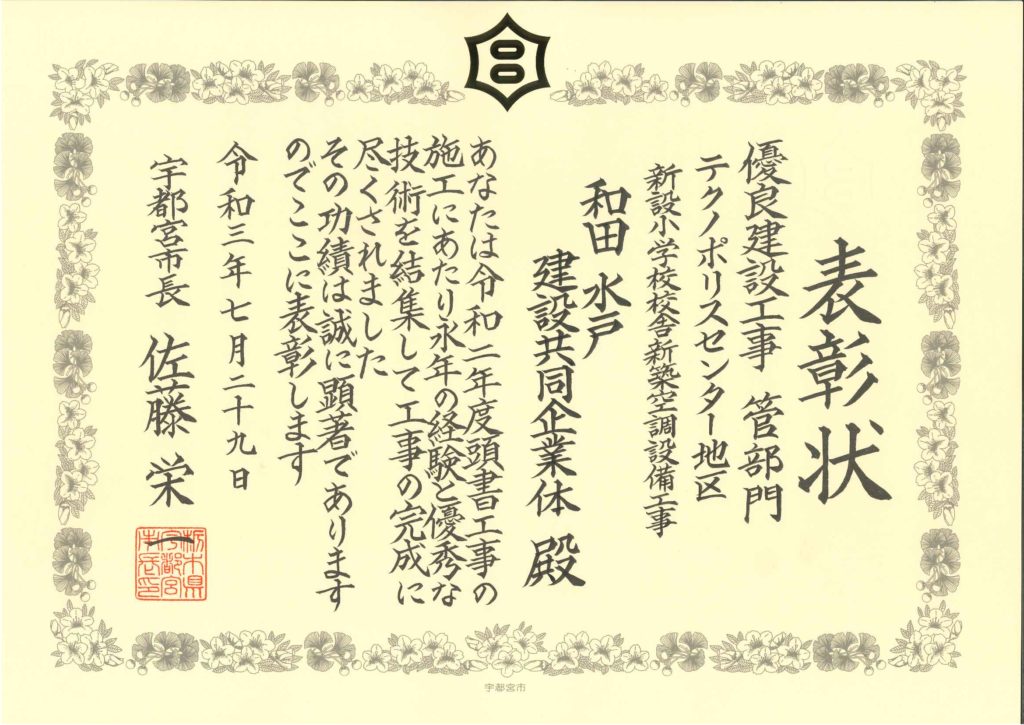 表彰状
優良建設工事 管部門
テクノポリスセンター地区
新設小学校校舎新築空調設備工事
和田 水戸
建設共同企業体 殿
あなたは令和二年度頭書工事の
施工にあたり永年の経験と優秀な
技術を結集して工事の完成に
尽くされました
その功績は誠に顕著であります
のでここに表彰します
令和三年七月二十九日
宇都宮市長 佐藤 栄一
栃木県
宇都宮
市長印
宇都宮市